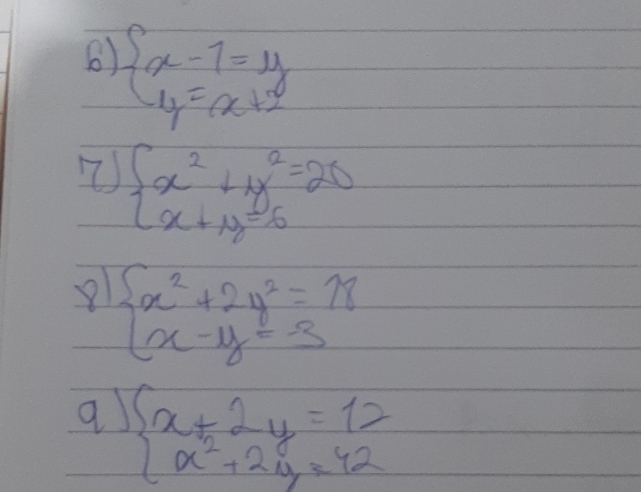 6) { x - 1 = y
y = x + 2
7) { x² + y² = 20
x + y = 6
8) { x² + 2y² = 18
x - y = -3
9) { x + 2y = 12
x² + 2y = 42